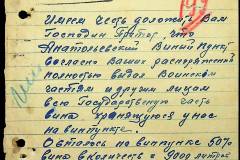 Имею честь доложить Вам
Господин Протор, что
Анатольевский Винный Пункт
согласно Ваших распоряжений
полностью выдал Воинским
частям и другим лицам
всю Государственную часть
вина хранящуюся у нас
на винпункте.
Осталось на винпункте 50%
вина в количестве 9000 литров